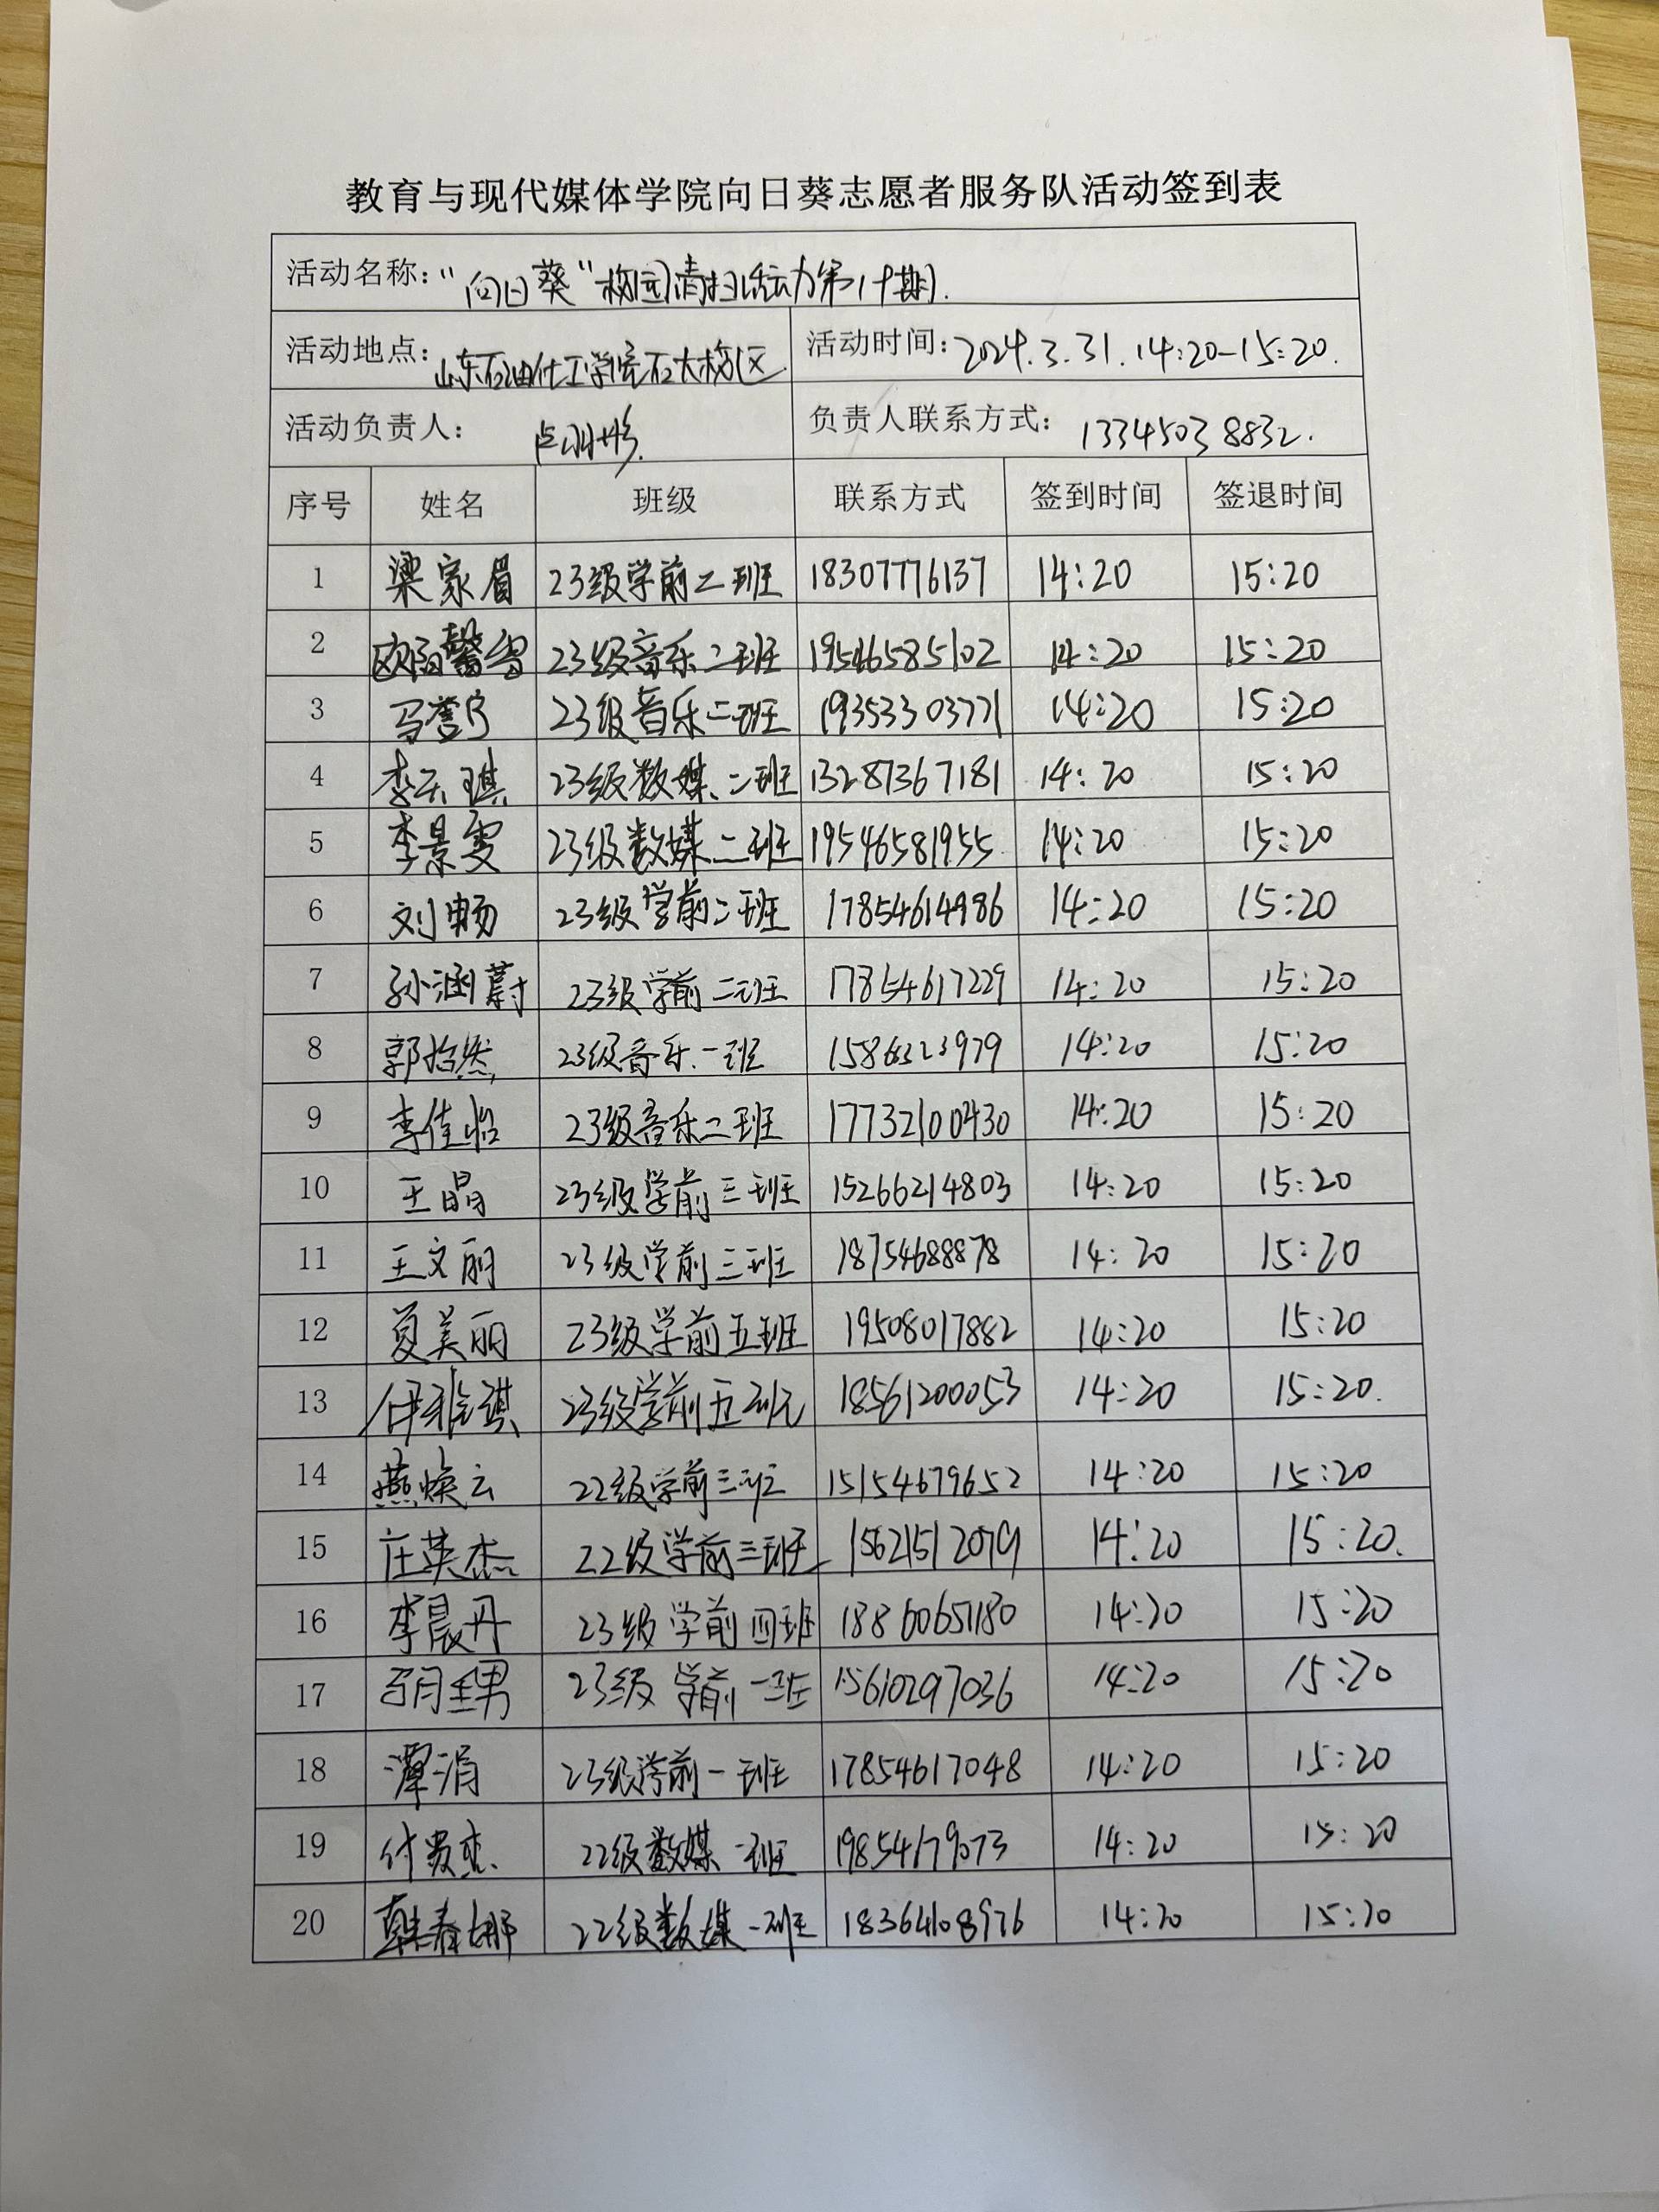 教育与现代媒体学院向日葵志愿者服务队活动签到表
活动名称：“向日葵”校园清扫活动第十期.
活动地点：山东石油化工学院石大校区 活动时间：2024.3.31.14:20-15:20.
活动负责人：卢 负责人联系方式：13345038832.
序号 姓名 班级 联系方式 签到时间 签退时间
1 梁家眉 23级学前二班 18307776137 14:20 15:20
2 欧阳馨 23级音乐二班 19546585102 14:20 15:20
3 马誉宁 23级音乐二班 19353303771 14:20 15:20
4 李天琪 23级数媒二班 13287367181 14:20 15:20
5 李景雯 23级数媒二班 19546581955 14:20 15:20
6 刘畅 23级学前二班 17854614986 14:20 15:20
7 孙涵蔚 23级学前二班 17854617229 14:20 15:20
8 郭怡然 23级音乐一班 14:20 15:20
9 李佳怡 23级音乐二班 17732100430 14:20 15:20
10 王晶 23级学前三班 15266214803 14:20 15:20
11 王文丽 23级学前三班 18754688878 14:20 15:20
12 夏美丽 23级学前五班 19508017882 14:20 15:20
13 伊雅琪 23级学前五班 18561200053 14:20 15:20.
14 燕焕云 22级学前三班 15154679652 14:20 15:20
15 庄英杰 22级学前三班 15621512079 14:20 15:20.
16 李晨丹 23级学前四班 18860651180 14:20 15:20
17 23级学前一班 15610297036 14:20 15:20
18 潭涓 23级学前一班 17854617048 14:20 15:20
19 付贵杰 22级数媒一班 19854179073 14:20 15:20
20 韩春娜 22级数媒一班 18364108976 14:20 15:20